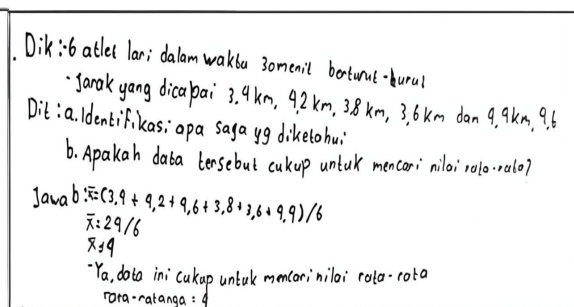 . Dik :- 6 atlet lari dalam waktu 30menit berturut-turut
- Jarak yang dicapai 3.4 km, 4.2 km, 3.8 km, 3,6 km dan 4,4km, 4,6
Dit : a. Identifikasi apa saja yg diketahui
b. Apakah data tersebut cukup untuk mencari nilai rata-rata?
Jawab : x̄=(3,4 + 4,2 + 4,6 + 3,8 + 3,6 + 4,4)/6
x̄ = 24/6
x̄ = 4
- Ya, data ini cukup untuk mencari nilai rata-rata
rata-ratanya = 4